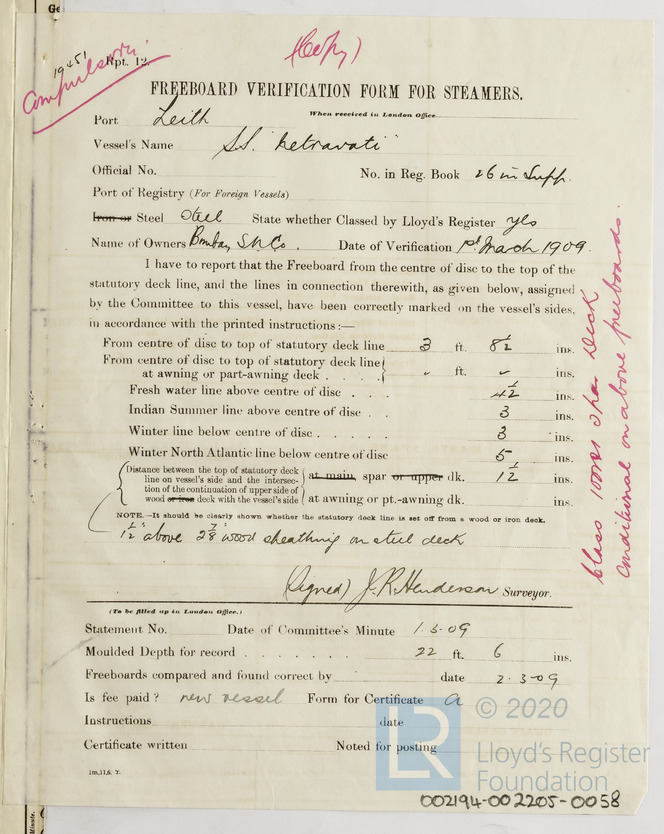 Ge
(Copy)
19451 Rpt. 12.
Compulsory.
FREEBOARD VERIFICATION FORM FOR STEAMERS.
Port Leith When received in London Office
Vessel's Name S.S. "Netravati"
Official No. No. in Reg. Book 26 in Supp.
Port of Registry (For Foreign Vessels)
Iron or Steel Steel State whether Classed by Lloyd's Register yes
Name of Owners Bombay S N Co. Date of Verification 1st March 1909.
I have to report that the Freeboard from the centre of disc to the top of the
statutory deck line, and the lines in connection therewith, as given below, assigned
by the Committee to this vessel, have been correctly marked on the vessel's sides,
in accordance with the printed instructions :—
From centre of disc to top of statutory deck line 3 ft. 8½ ins.
From centre of disc to top of statutory deck line
at awning or part-awning deck . . . . ft. ins.
Fresh water line above centre of disc . . . 4½ ins.
Indian Summer line above centre of disc . . 3 ins.
Winter line below centre of disc . . . . . 3 ins.
Winter North Atlantic line below centre of disc 5 ins.
Distance between the top of statutory deck
line on vessel's side and the intersec-
tion of the continuation of upper side of
wood or iron deck with the vessel's side
at main, spar or upper dk. 1½ ins.
at awning or pt.-awning dk. ins.
NOTE.—It should be clearly shown whether the statutory deck line is set off from a wood or iron deck.
1½" above 2⅞" wood sheathing on steel deck
(Signed) J. R. Henderson Surveyor.
Class 100A1 Spar Deck
Conditional on above freeboards.
(To be filled up in London Office.)
Statement No. Date of Committee's Minute 1.3.09
Moulded Depth for record . . . . . . . 22 ft. 6 ins.
Freeboards compared and found correct by date 2.3.09
Is fee paid? new vessel Form for Certificate a
Instructions date
Certificate written Noted for posting
1m,11,6. T.
LR
© 2020
Lloyd's Register
Foundation
002194-002205-0058
Minute.